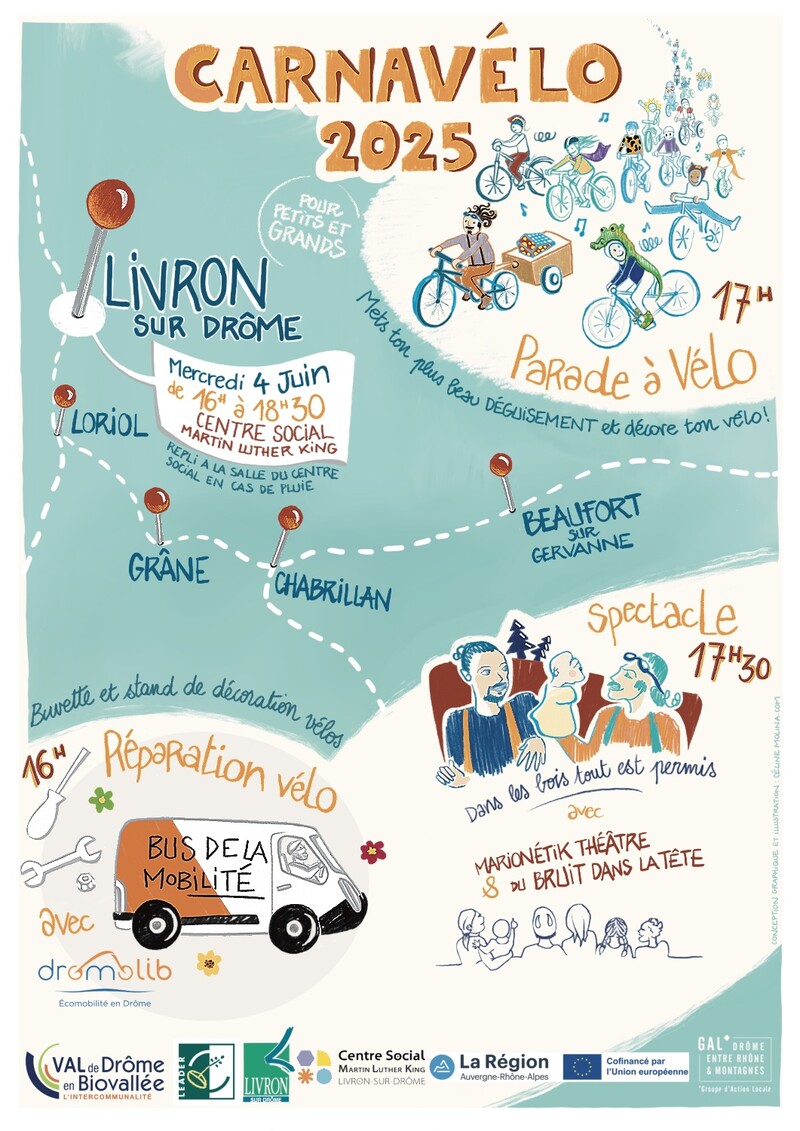 CARNAVÉLO
2025
POUR
PETITS ET
GRANDS
LIVRON
SUR DRÔME
Mercredi 4 Juin
de 16H à 18H30
CENTRE SOCIAL
MARTIN LUTHER KING
REPLI A LA SALLE DU CENTRE
SOCIAL EN CAS DE PLUIE
17H
PARADE à VÉLO
Mets ton plus beau DÉGUISEMENT et décore ton vélo!
LORIOL
GRÂNE
CHABRILLAN
BEAUFORT
SUR
GERVANNE
Spectacle
17H30
Dans les bois tout est permis
avec
MARIONÉTIK THÉÂTRE
& DU BRUIT DANS LA TÊTE
Buvette et stand de décoration vélos
16H
Réparation vélo
BUS DE LA
MOBILITÉ
avec
dromolib
Écomobilité en Drôme
CONCEPTION GRAPHIQUE ET ILLUSTRATION : CÉLINE MOLINA.COM
VAL de Drôme
en Biovallée
L'INTERCOMMUNALITÉ
LEADER
LIVRON
SUR DRÔME
Centre Social
MARTIN LUTHER KING
LIVRON-SUR-DRÔME
La Région
Auvergne-Rhône-Alpes
Cofinancé par
l'Union européenne
GAL* DRÔME
ENTRE RHÔNE
& MONTAGNES
*Groupe d'Action Locale